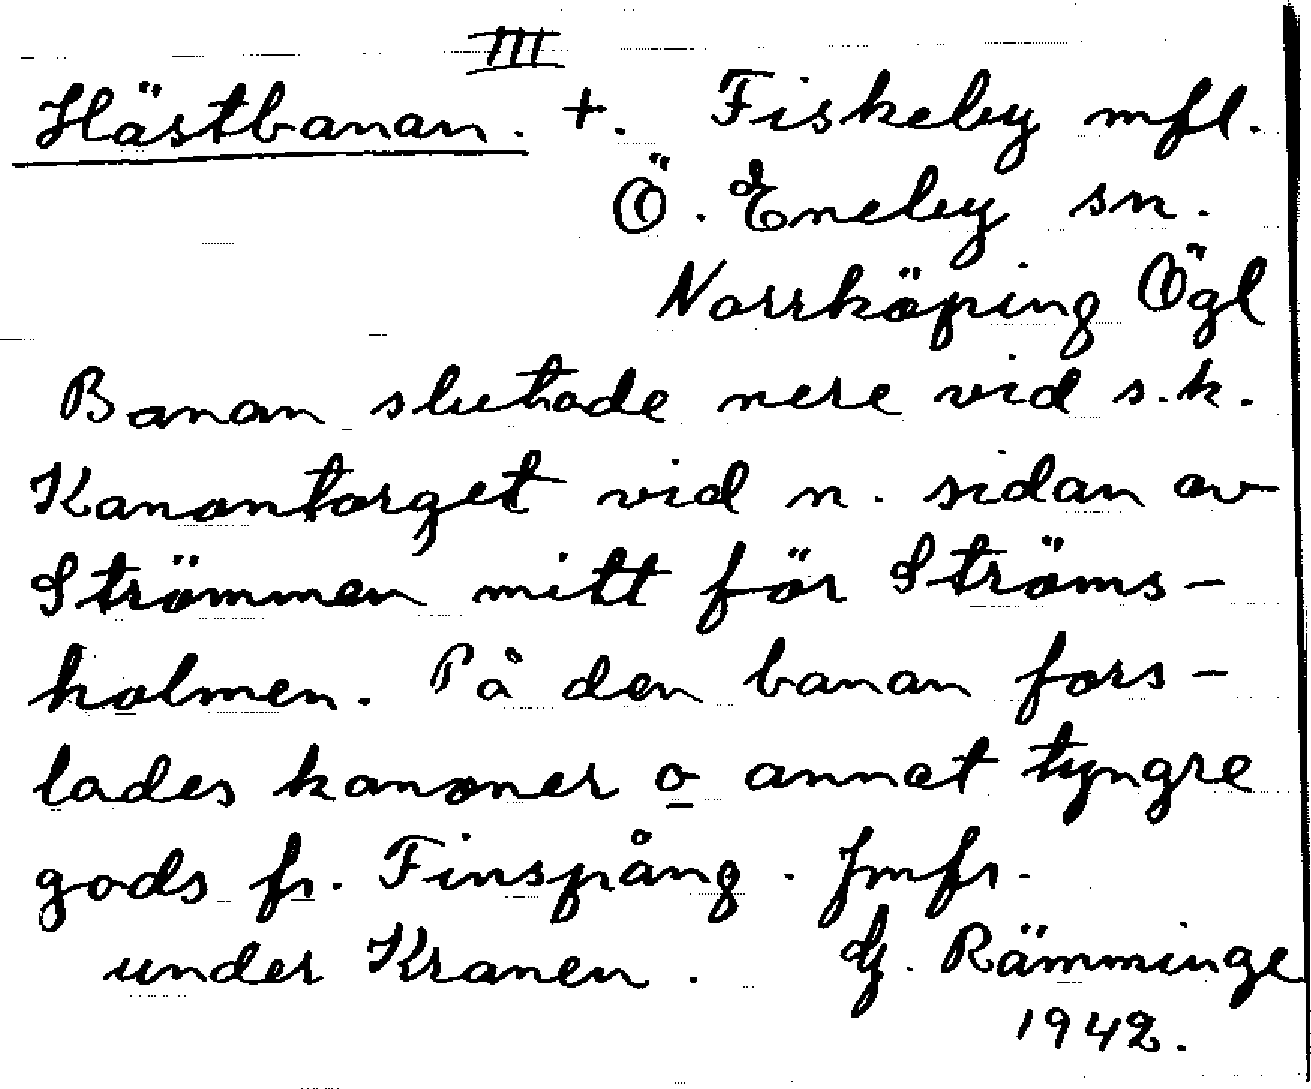 III
Hästbanan. +. Fiskeby mfl.
Ö. Eneby sn.
Norrköping Ögl
Banan slutade nere vid s.k.
Kanontorget vid n. sidan av
Strömmen mitt för Ströms-
holmen. På den banan fors-
lades kanoner o annat tyngre
gods fr. Finspång. Jmfr.
under Kranen. G. Rämminge
1942.